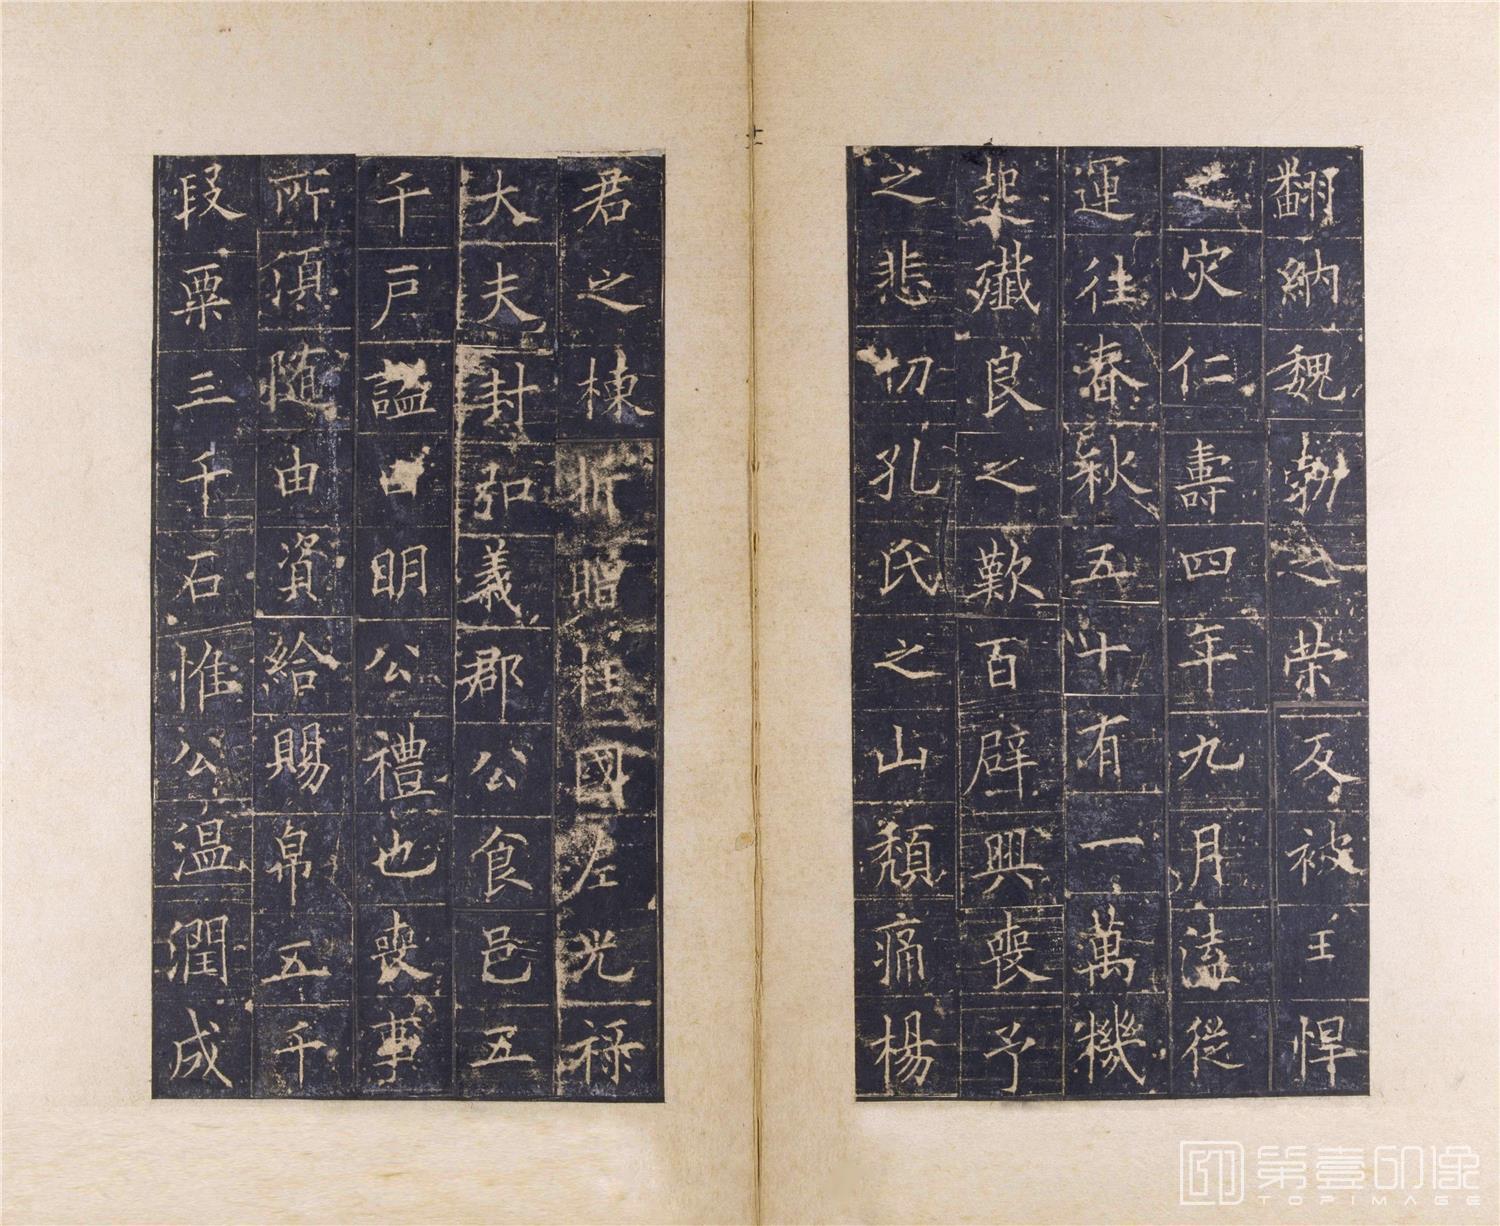 翻納魏勃之榮反被王悍
之灾仁壽四年九月溘從
運往春秋五十有一萬機
起殲良之歎百辟興喪予
之悲切孔氏之山頹痛楊
君之棟折贈柱國左光祿
大夫封弘義郡公食邑五
千戶謚曰明公禮也喪事
所須随由資給賜帛五千
段粟三千石惟公温潤成
第壹印像
TOPIMAGE